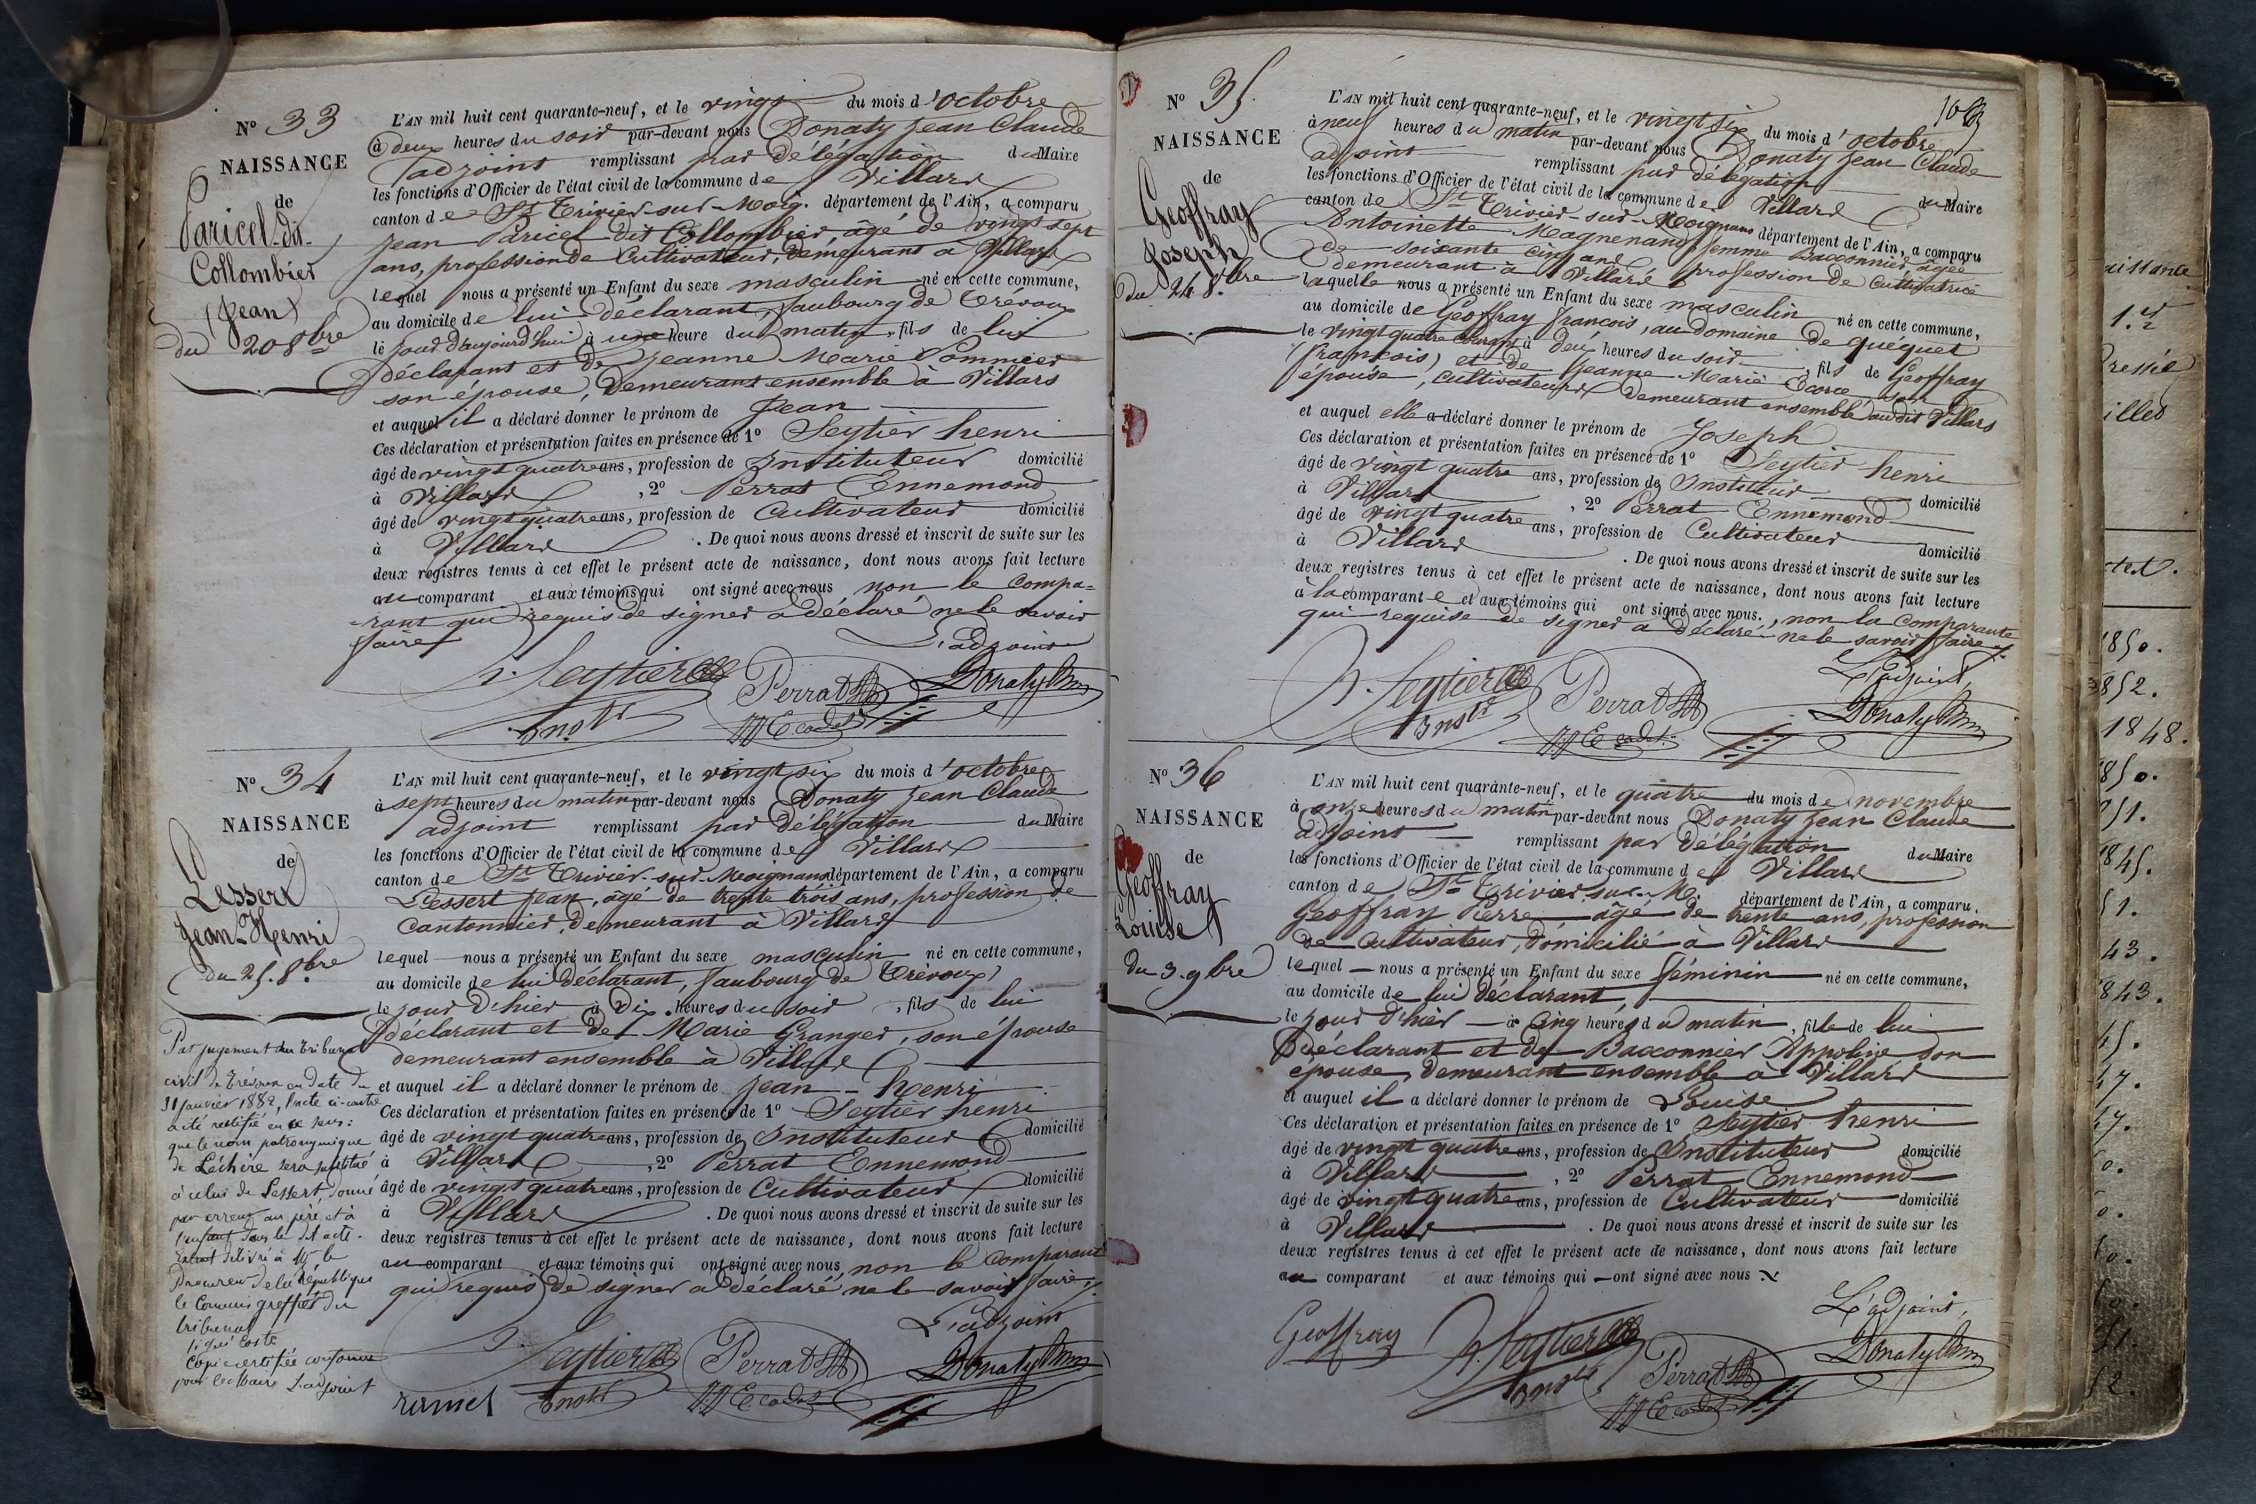 N° 33
NAISSANCE
de
Paricel-dit-
Collombier
(Jean)
du 20 8bre
L'AN mil huit cent quarante-neuf, et le vingt du mois d'octobre
à deux heures du soir par-devant nous Donaty Jean Claude
adjoint remplissant par délégation du Maire
les fonctions d'Officier de l'état civil de la commune de Villars
canton de St Trivier-sur-Moig. département de l'Ain, a comparu
Jean Paricel dit Collombier âgé de vingt sept
ans, profession de Cultivateur, demeurant à Villars
lequel nous a présenté un Enfant du sexe masculin né en cette commune,
au domicile de lui déclarant, faubourg de Trévoux
le jour d'aujourd'hui à une heure du matin, fils de lui
déclarant et de Jeanne Marie Pommier
son épouse, demeurant ensemble à Villars
et auquel il a déclaré donner le prénom de Jean
Ces déclaration et présentation faites en présence de 1° Seytier henri
âgé de vingt quatre ans, profession de Instituteur domicilié
à Villars, 2° Perrat Ennemond
âgé de vingt quatre ans, profession de Cultivateur domicilié
à Villars. De quoi nous avons dressé et inscrit de suite sur les
deux registres tenus à cet effet le présent acte de naissance, dont nous avons fait lecture
au comparant et aux témoins qui ont signé avec nous non le compa-
rant qui requis de signer a déclaré ne le savoir
faire
L'adjoint
h. Seytier Perrat Donaty
Instr E cadet
N° 34
NAISSANCE
de
Lessert
Jean-Henri
du 25. 8bre
Par jugement du tribunal
civil de Trévoux en date du
31 janvier 1882, l'acte ci-contre
a été rectifié en ce sens:
que le nom patronymique
de Léchère sera substitué
à celui de Lessert donné
par erreur au père et à
l'enfant dans le dit acte.
Extrait délivré à Mr le
Procureur de la République
le Commis greffier du
tribunal
signé Coste
Copie certifiée conforme
pour le Maire L'adjoint
L'AN mil huit cent quarante-neuf, et le vingt six du mois d'octobre
à sept heures du matin par-devant nous Donaty Jean Claude
adjoint remplissant par délégation du Maire
les fonctions d'Officier de l'état civil de la commune de Villars
canton de St Trivier-sur-Moignans département de l'Ain, a comparu
Lessert Jean, âgé de trente trois ans, profession de
Cantonnier, demeurant à Villars
lequel nous a présenté un Enfant du sexe masculin né en cette commune,
au domicile de lui déclarant, faubourg de Trévoux,
le jour d'hier à dix heures du soir, fils de lui
déclarant et de Marie Granger, son épouse
demeurant ensemble à Villars
et auquel il a déclaré donner le prénom de Jean-henri
Ces déclaration et présentation faites en présence de 1° Seytier henri
âgé de vingt quatre ans, profession de Instituteur domicilié
à Villars, 2° Perrat Ennemond
âgé de vingt quatre ans, profession de Cultivateur domicilié
à Villars. De quoi nous avons dressé et inscrit de suite sur les
deux registres tenus à cet effet le présent acte de naissance, dont nous avons fait lecture
au comparant et aux témoins qui ont signé avec nous, non le comparant
qui requis de signer a déclaré ne le savoir faire.
L'adjoint
h. Seytier Perrat Donaty
Instr E cadet
N° 35.
NAISSANCE
de
Geoffray
Joseph
du 24 8.bre
L'AN mil huit cent quarante-neuf, et le vingt six du mois d'octobre
à neuf heures du matin par-devant nous Donaty Jean Claude
adjoint remplissant par délégation du Maire
les fonctions d'Officier de l'état civil de la commune de Villars
canton de St Trivier-sur-Moignans département de l'Ain, a comparu
Antoinette Magnenand femme Bacconnier âgée
de soixante cinq ans, profession de Cultivatrice
demeurant à Villars
laquelle nous a présenté un Enfant du sexe masculin né en cette commune,
au domicile de Geoffray françois, au domaine de quéquet
le vingt quatre courant à deux heures du soir, fils de Geoffray
(françois) et de Jeanne Marie Ecorce, son
épouse, cultivateurs demeurant ensemble audit Villars
et auquel elle a déclaré donner le prénom de Joseph
Ces déclaration et présentation faites en présence de 1° Seytier henri
âgé de vingt quatre ans, profession de Instituteur domicilié
à Villars, 2° Perrat Ennemond
âgé de vingt quatre ans, profession de Cultivateur domicilié
à Villars. De quoi nous avons dressé et inscrit de suite sur les
deux registres tenus à cet effet le présent acte de naissance, dont nous avons fait lecture
à la comparante et aux témoins qui ont signé avec nous., non la comparante
qui requise de signer a déclaré ne le savoir faire.
L'adjoint,
h. Seytier Perrat Donaty
Instr E cadet
N° 36
NAISSANCE
de
Geoffray
Louise
du 3. 9bre
L'AN mil huit cent quarante-neuf, et le quatre du mois de novembre
à onze heures du matin par-devant nous Donaty Jean Claude
adjoint remplissant par délégation du Maire
les fonctions d'Officier de l'état civil de la commune de Villars
canton de St Trivier sur-M. département de l'Ain, a comparu
Geoffray Pierre âgé de trente ans, profession
de Cultivateur, domicilié à Villars
lequel nous a présenté un Enfant du sexe féminin né en cette commune,
au domicile de lui déclarant,
le jour d'hier à Cinq heures du matin, fille de lui
déclarant et de Bacconnier Appoline son
épouse, demeurant ensemble à Villars
et auquel il a déclaré donner le prénom de Louise
Ces déclaration et présentation faites en présence de 1° Seytier henri
âgé de vingt quatre ans, profession de Instituteur domicilié
à Villars, 2° Perrat Ennemond
âgé de vingt quatre ans, profession de Cultivateur domicilié
à Villars. De quoi nous avons dressé et inscrit de suite sur les
deux registres tenus à cet effet le présent acte de naissance, dont nous avons fait lecture
au comparant et aux témoins qui ont signé avec nous
L'adjoint,
Geoffray h. Seytier Perrat Donaty
Instr E cadet
1850.
1852.
1848.